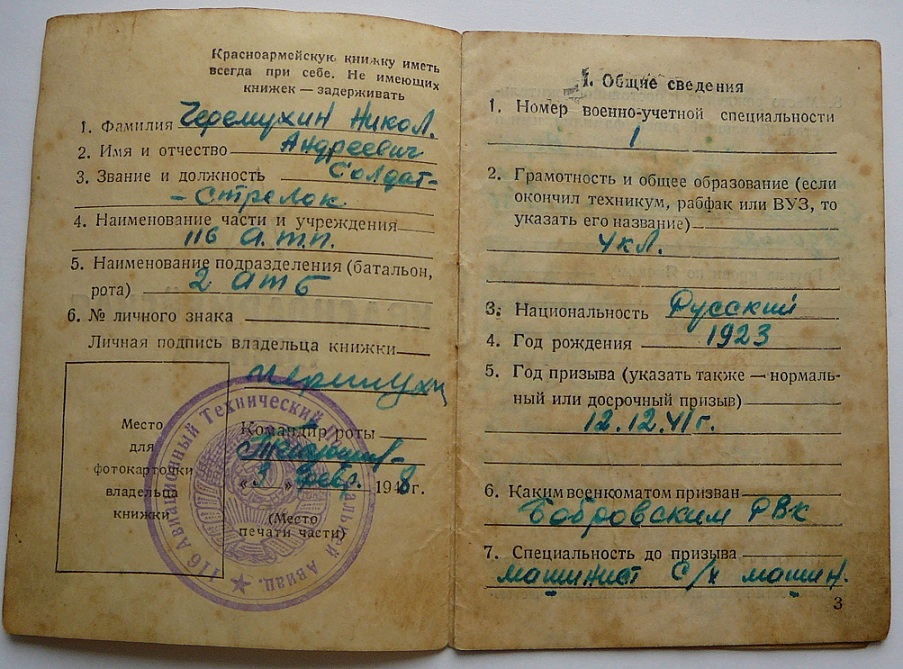 Красноармейскую книжку иметь
всегда при себе. Не имеющих
книжек — задерживать
1. Фамилия Черемухин Никол.
2. Имя и отчество Андреевич
3. Звание и должность Солдат-
- Стрелок
4. Наименование части и учреждения
116 а.т.п.
5. Наименование подразделения (батальон,
рота) 2 атб
6. № личного знака
Личная подпись владельца книжки
Место
для
фотокарточки
владельца
книжки
Командир роты
« 3 » февр. 1948 г.
(Место
печати части)
116 Авиационный Технический Авиац.
I. Общие сведения
1. Номер военно-учетной специальности
1
2. Грамотность и общее образование (если
окончил техникум, рабфак или ВУЗ, то
указать его название)
4 кл.
3. Национальность Русский
4. Год рождения 1923
5. Год призыва (указать также — нормаль-
ный или досрочный призыв)
12.12.41 г.
6. Каким военкоматом призван
Бобровским РВК
7. Специальность до призыва
машинист с/х машин.
3